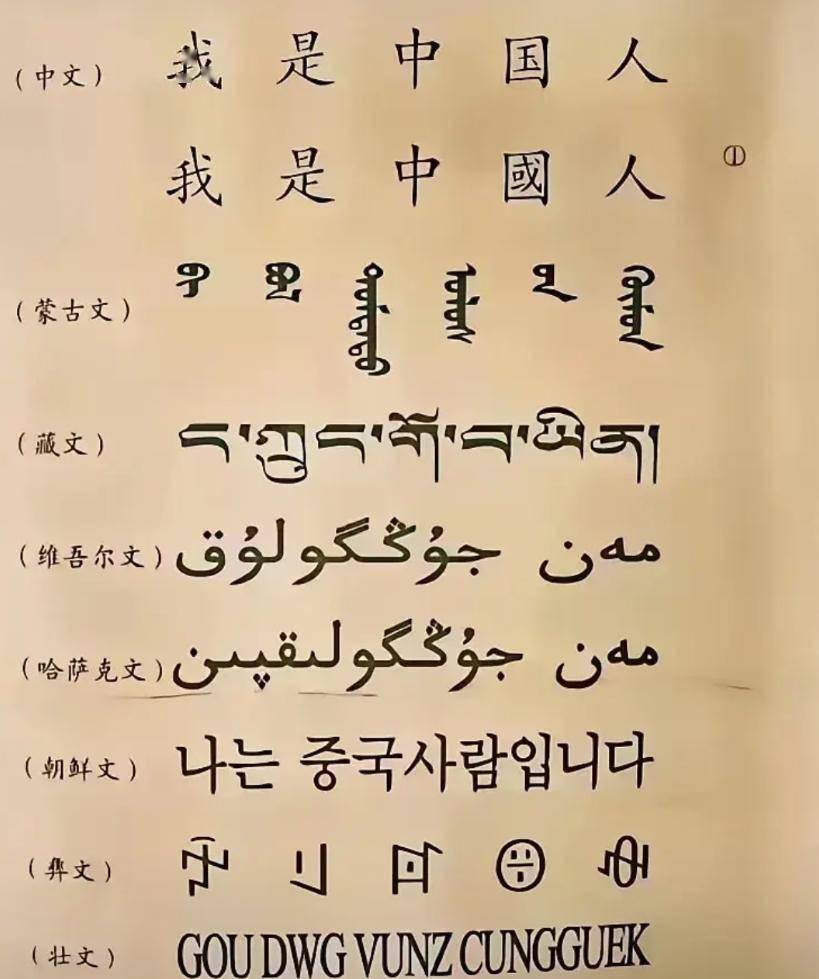 (中文) 我 是 中 国 人
我 是 中 國 人 ①
(蒙古文)
(藏文) ང་ཀྲུང་གོ་བ་ཡིན།
(维吾尔文) مەن جۇڭگولۇق
(哈萨克文) مەن جۇڭگولىقپىن
(朝鲜文) 나는 중국사람입니다
(彝文)
(壮文) GOU DWG VUNZ CUNGGUEK